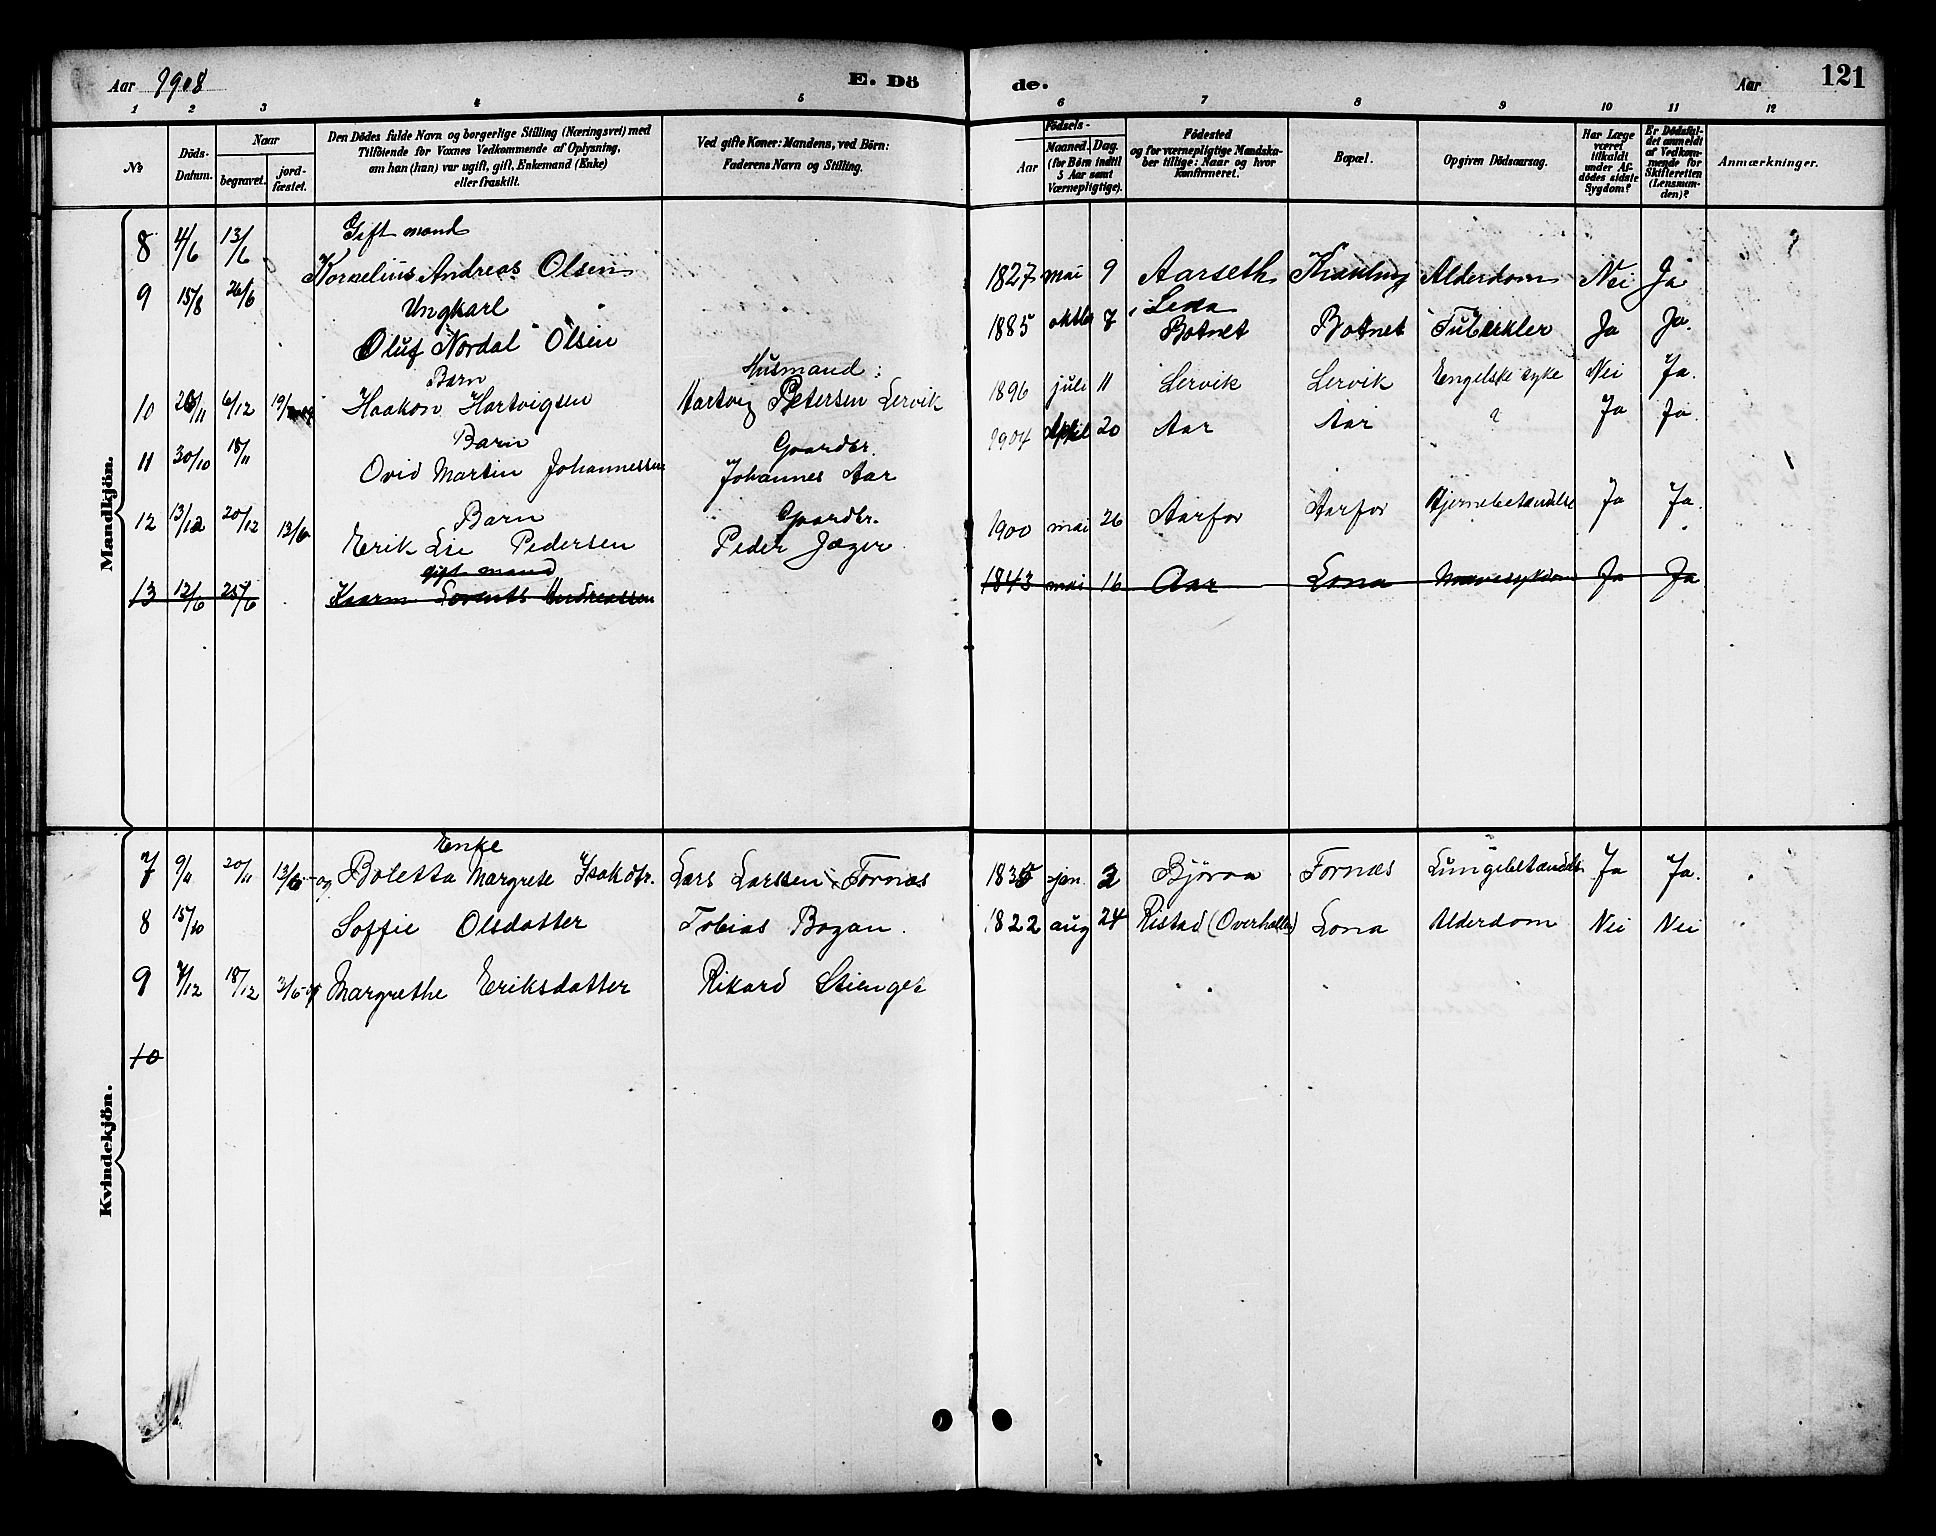 Aar 1908
E. Dö
de.
Aar
121
1 2 3 4 5 6 7 8 9 10 11 12
No
Döds-Datum.
Naar
begravet.
jord-fæstet.
Den Dödes fulde Navn og borgerlige Stilling (Næringsvei) med Tilföiende for Voxnes Vedkommende af Oplysning, om han (hun) var ugift, gift, Enkemand (Enke) eller fraskilt.
Ved gifte Koner: Mandens, ved Börn: Faderens Navn og Stilling.
Födsels-
Aar
Maaned. Dag.
(for Börn indtil 5 Aar samt Værnepligtige).
Födested og for værnepligtige Mandskaber tillige: Naar og hvor konfirmeret.
Bopæl.
Opgiven Dödsaarsag.
Har Læge været tilkaldt under Afdödes sidste Sygdom?
Er Dödsfaldet anmeldt af Vedkommende for Skifteretten (Lensmanden)?
Anmærkninger.
Mandkjön.
Gift mand
8 4/6 13/6 Kornelius Andreas Olsen 1827 mai 9 Aarseth Alderdom Nei Ja
Ungkarl
9 15/8 26/6 Oluf Nordal Olsen 1885 oktb 7 i Leka Botnet Botnet Tuberkler Ja Ja.
Barn Husmand:
10 6/12 Haakon Hartvigsen Hartvig Petersen Lervik 1896 juli 11 Lervik Lervik Engelske syke Nei Ja.
Barn Gaardbr.
11 30/10 18/11 Ovid Martin Johannessen Johannes Aar 1904 April 20 Aar Aar ? Ja Ja.
Barn Gaardbr.
12 13/12 20/12 13/6 Erik Lie Pedersen Peder Jæger 1900 mai 26 Aarfor Aarfor Hjernebetændelse Ja Ja.
gift mand
13 12/6 25/6 Kaarm Lorents Andreassen 1843 mai 16 Aar Lona Mavesykdom Ja Ja
Kvindekjön.
Enke
7 9/11 20/11 13/6-09 Boletta Margrete Isakdtr. Lars Larssen Fornæs 1835 jan. 2 Björaa Fornæs Lungebetændels Ja Ja.
8 15/10 Soffie Olsdatter Tobias Bogan. 1822 aug 24 Ristad (Overhallen) Lona Alderdom Nei Nei
9 7/12 18/12 Margrethe Eriksdatter Rikard
10